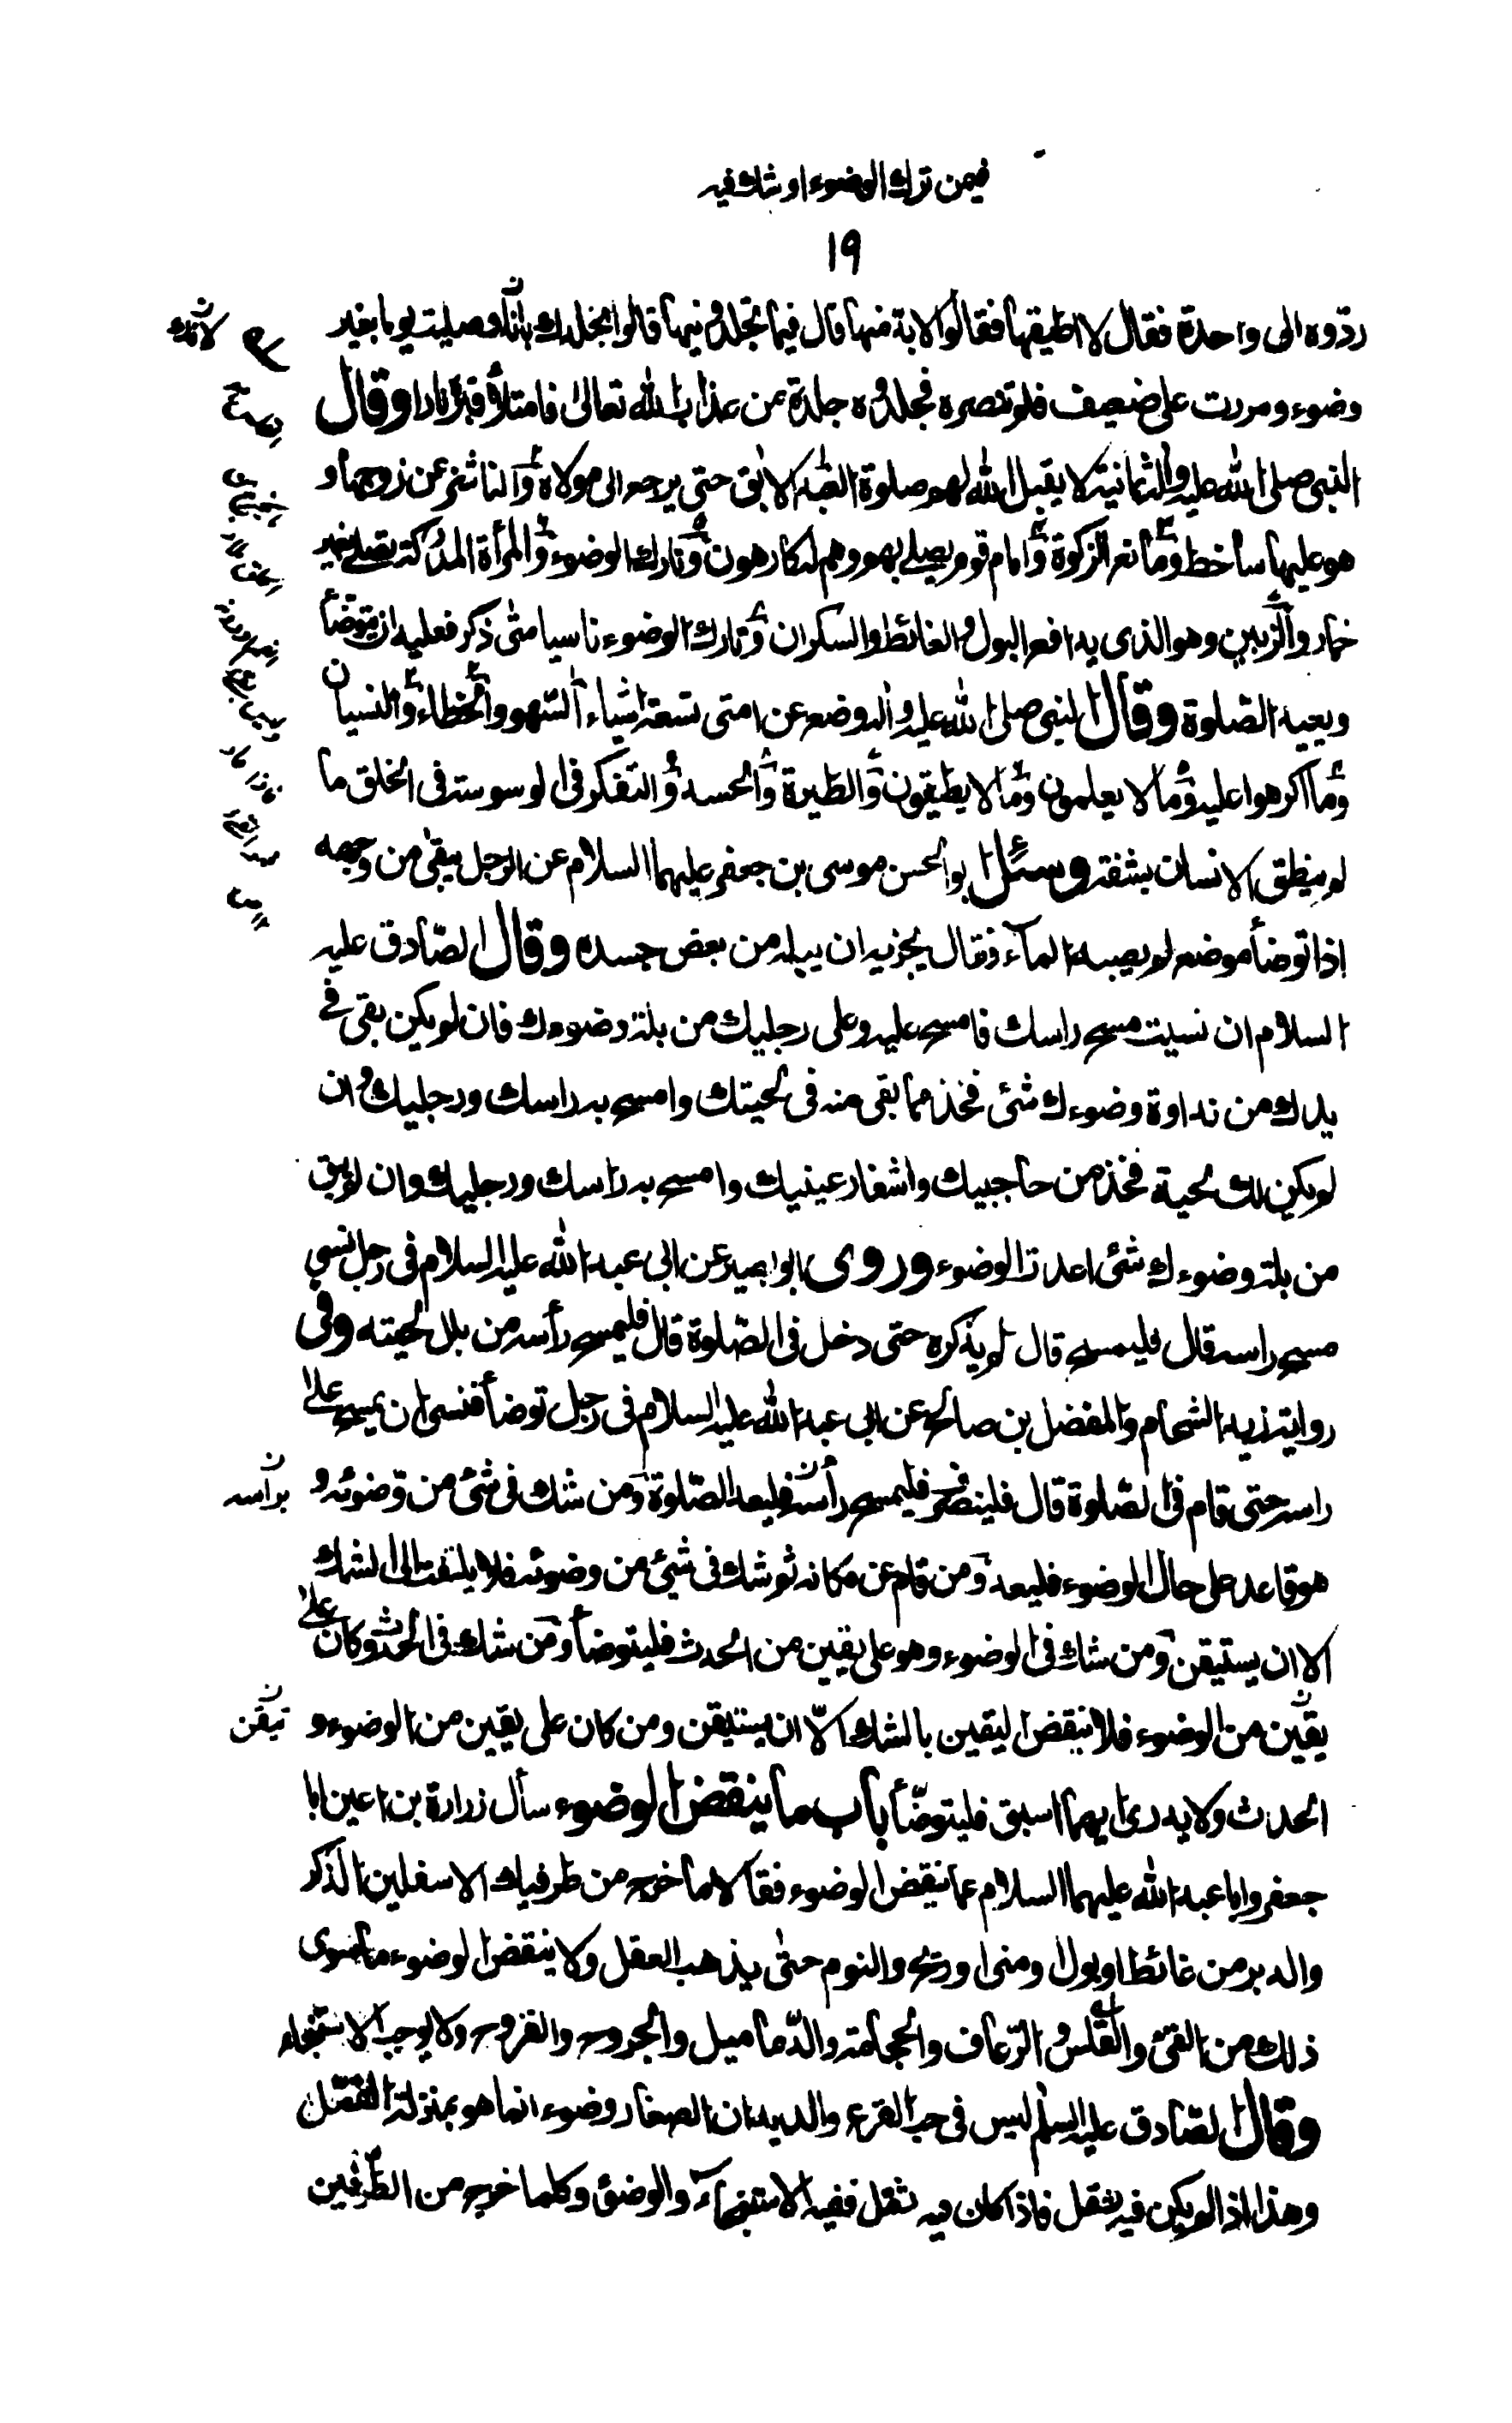 فيمن ترك الوضوء او شك فيه
١٩
ردّوه الى واحدة فقال لا اطيقها فقالوا لا بد منها قال فيما تجلدونيها قالوا نجلدك بانك صليت يوما بغير
وضوء ومررت على ضعيف فلم تنصره فجلدوه جلدة من عذاب الله تعالى فامتلأ قبره نارا وقال
النبي صلى الله عليه واله ثمانية لا يقبل الله لهم صلوة العبد الابق حتى يرجع الى مولاه والناشز عن زوجها و
هو عليها ساخط ومانع الزكوة وامام قوم يصلى بهم وهم له كارهون وتارك الوضوء والمرأة المدركة تصلى بغير
خمار والزبين وهو الذى يدافع البول والغائط والسكران وتارك الوضوء ناسيا متى ذكر فعليه ان يتوضأ
ويعيد الصّلوة وقال النبى صلى الله عليه واله وضع عن امتى تسعة اشياء السّهو والخطاء والنسيان
وما اكرهوا عليه وما لا يعلمون وما لا يطيقون والطيرة والحسد والتفكر فى الوسوسة فى الخلق ما
لم ينطق الانسان بشفته وسئل ابو الحسن موسى بن جعفر عليهما السلام عن الرجل يبقى من وجهه
اذا توضأ موضع لم يصبه الماء فقال يجزيه ان يبله من بعض جسده وقال الصّادق عليه
السلام ان نسيت مسح راسك فامسح عليه وعلى رجليك من بلة وضوءك فان لم يكن بقى فى
يدك من نداوة وضوءك شئ فخذ مما بقى منه فى لحيتك وامسح به راسك ورجليك وان
لم يكن لك لحية فخذ من حاجبيك واشفار عينيك وامسح به راسك ورجليك وان لم يبق
من بلة وضوءك شئ اعدت الوضوء وروى ابو بصير عن ابى عبد الله عليه السلام فى رجل نسى
مسح راسه قال فليمسح قال لم يذكره حتى دخل فى الصّلوة قال فليمسح رأسه من بلل لحيته وفى
رواية زيد الشحام والمفضل بن صالح عن ابى عبد الله عليه السلام فى رجل توضأ فنسى ان يمسح على
راسه حتى قام فى الصّلوة قال فلينصرف فليمسح رأسه وليعد الصّلوة ومن شك فى شئ من وضوئه و
براسه
هو قاعد على حال الوضوء فليعد ومن قام عن مكانه ثم شك فى شئ من وضوئه فلا يلتفت الى الشك
الا ان يستيقن ومن شك فى الوضوء وهو على يقين من الحدث فليتوضأ ومن شك فى الحدث وكان على
يقين من الوضوء فلا ينقض اليقين بالشك الّا ان يستيقن ومن كان على يقين من الوضوء و
تيقن
الحدث ولا يدرى ايهما اسبق فليتوضّأ باب ما ينقض الوضوء سأل زرارة بن اعين ابا
جعفر وابا عبد الله عليهما السلام عما ينقض الوضوء فقالا ما خرج من طرفيك الاسفلين الذكر
والدبر من غائط او بول او منى او ريح والنوم حتى يذهب العقل ولا ينقض الوضوء ما سوى
ذلك من القئ والقلس والرّعاف والحجامة والدّماميل والجروح والقروح ولا يوجب الاستنجاء
وقال الصّادق عليه السلم ليس فى حب القرع والديدان الصغار وضوء انما هو بمنزلة القمّل
وهذا اذا لم يكن فيه ثفل فاذا كان فيه ثفل ففيه الاستنجاء والوضوء وكلما خرج من الطّرفين